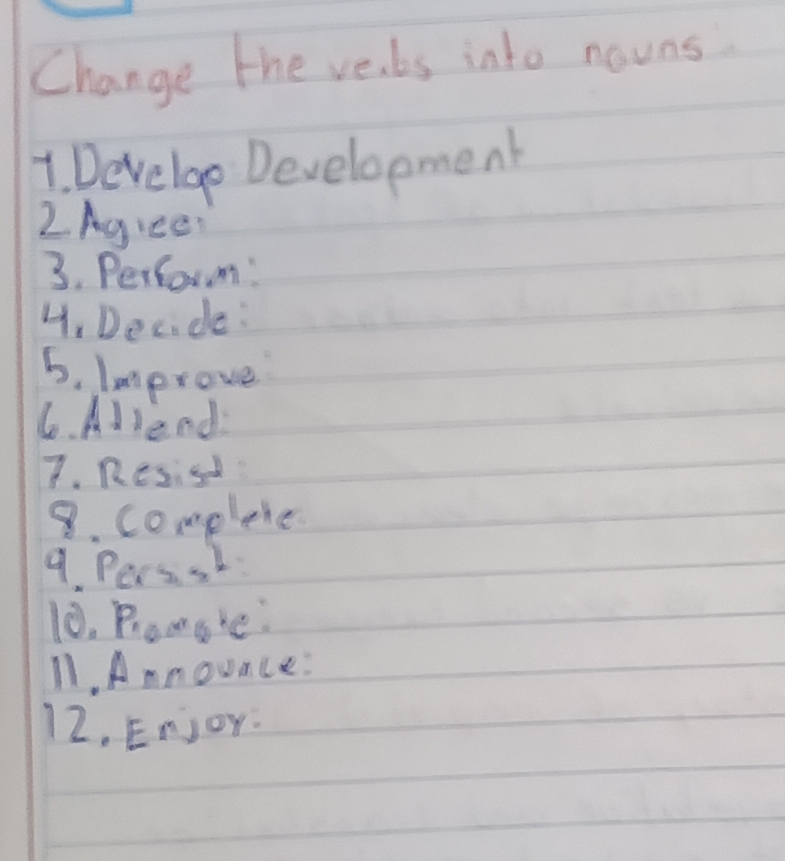 Change the verbs into nouns:
1. Develop Development
2. Agree:
3. Perform:
4. Decide:
5. Improve:
6. Attend:
7. Resist:
8. Complete:
9. Persist:
10. Promote:
11. Announce:
12. Enjoy: